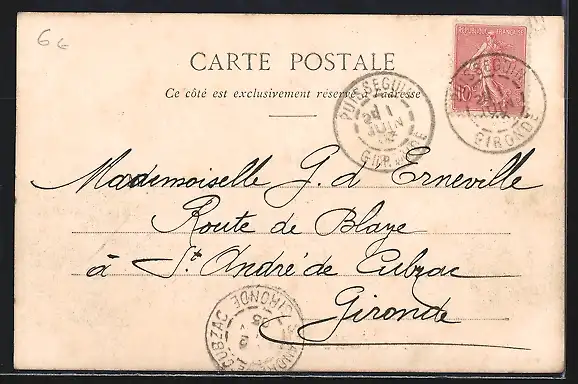 6€
CARTE POSTALE
Ce côté est exclusivement réservé à l'adresse
REPUBLIQUE FRANÇAISE
10
PUISSEGUIN
JUIN
GIRONDE
PUISSEGUIN
JUIN
GIRONDE
Mademoiselle G. d'Erneville
Route de Blaye
à St André de Cubzac
Gironde
CUBZAC
GIRONDE